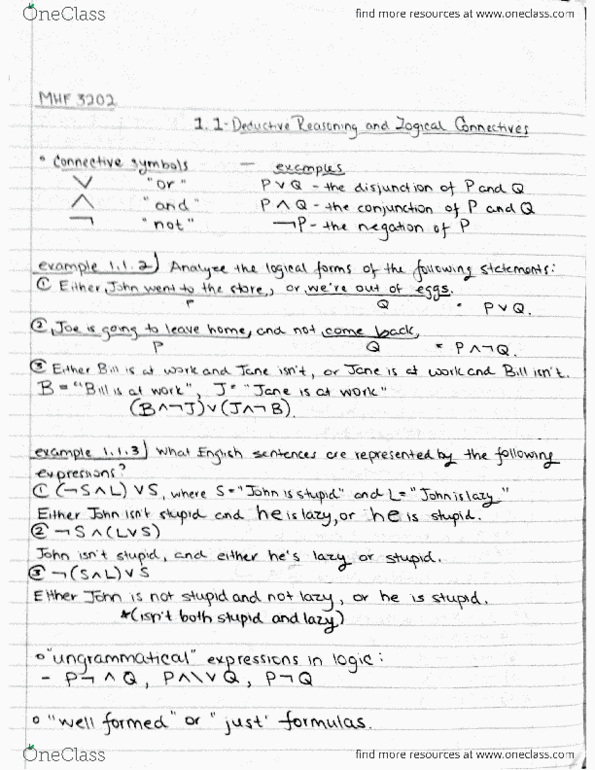 OneClass
find more resources at www.oneclass.com
MHF 3202
1.1-Deductive Reasoning and Logical Connectives
• Connective symbols — examples
∨ "or" P∨Q - the disjunction of P and Q
∧ "and" P∧Q - the conjunction of P and Q
¬ "not" ¬P - the negation of P
example 1.1.2) Analyze the logical forms of the following statements:
① Either John went to the store, or we're out of eggs.
P Q • P∨Q.
② Joe is going to leave home, and not come back,
P Q • P∧¬Q.
③ Either Bill is at work and Jane isn't, or Jane is at work and Bill isn't.
B = "Bill is at work", J = "Jane is at work"
(B∧¬J)∨(J∧¬B).
example 1.1.3) What English sentences are represented by the following
expressions?
① (¬S∧L)∨S, where S="John is stupid" and L="John is lazy"
Either John isn't stupid and he is lazy, or he is stupid.
② ¬S∧(L∨S)
John isn't stupid, and either he's lazy or stupid.
③ ¬(S∧L)∨S
Either John is not stupid and not lazy, or he is stupid.
*(isn't both stupid and lazy)
• "ungrammatical" expressions in logic:
- P¬∧Q, P∧\∨Q, P¬Q
• "well formed" or "just' formulas.
OneClass
find more resources at www.oneclass.com